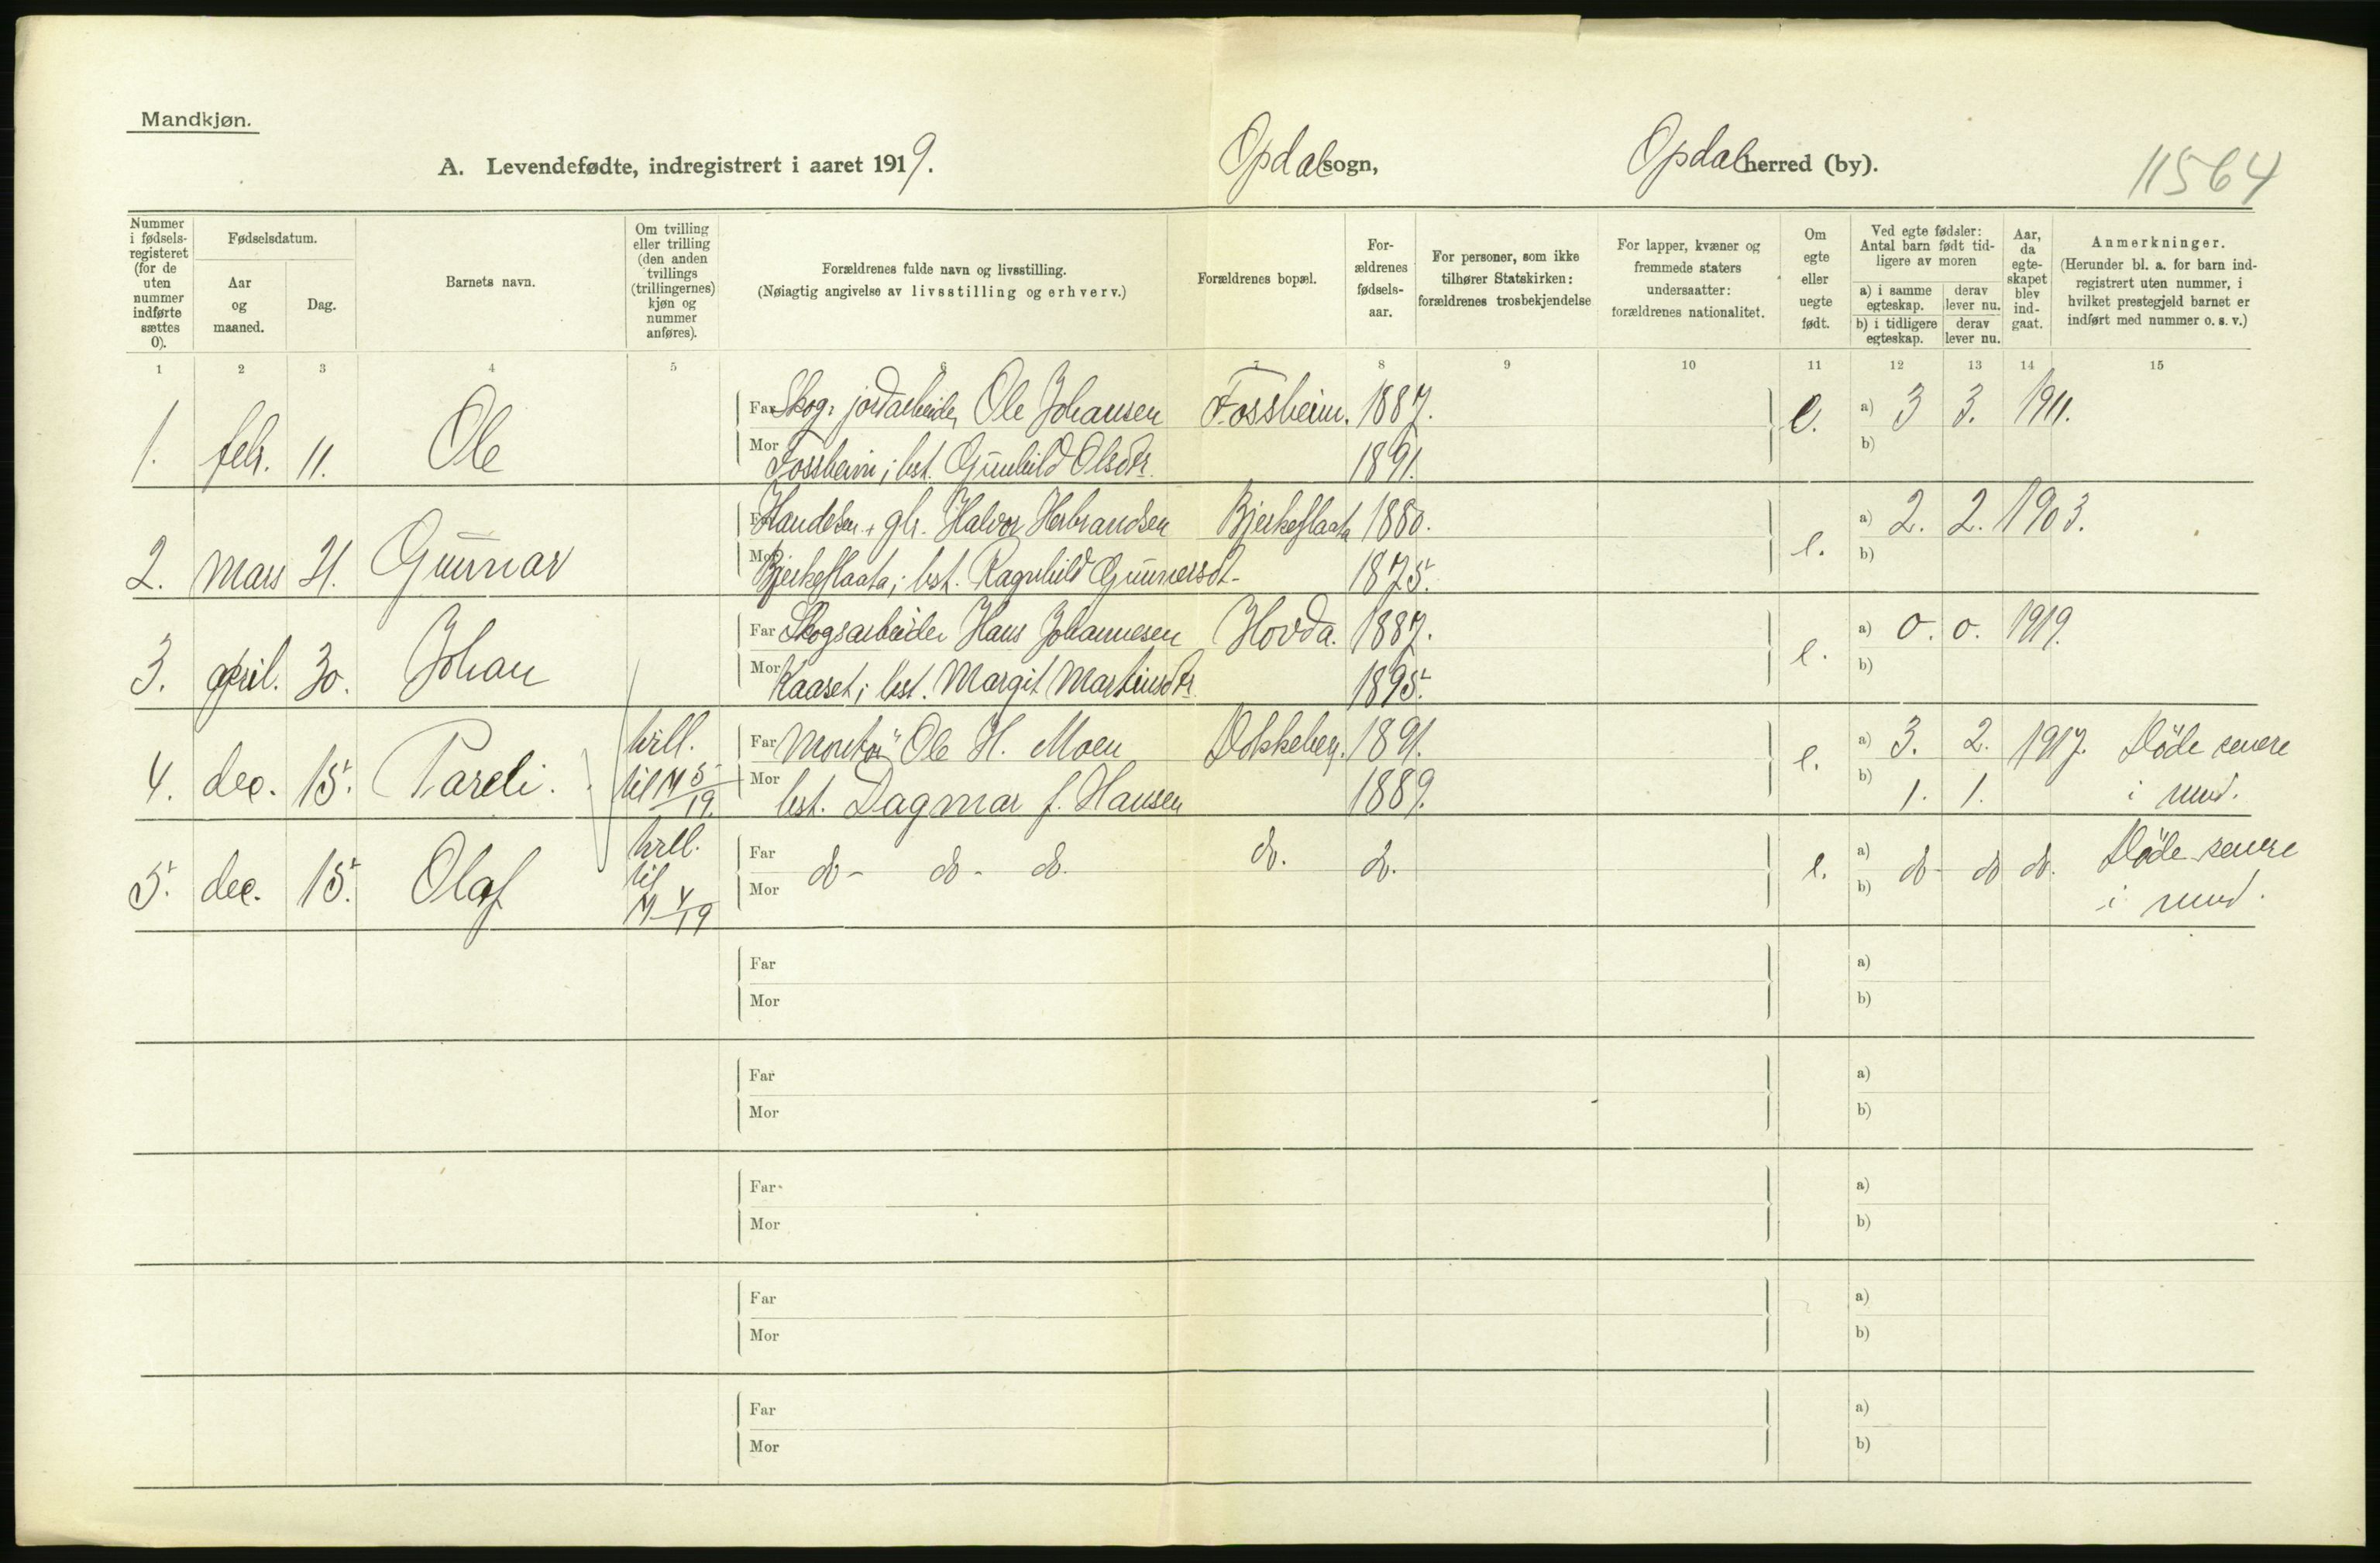 Mandkjøn.
A. Levendefødte, indregistrert i aaret 1919.
Opdal sogn,
Opdal herred (by).
11564
Nummer i fødsels-registeret (for de uten nummer indførte sættes 0).
Fødselsdatum.
Aar og maaned.
Dag.
Barnets navn.
Om tvilling eller trilling (den anden tvillings (trillingernes) kjøn og nummer anføres).
Forældrenes fulde navn og livsstilling.
(Nøiagtig angivelse av livsstilling og erhverv.)
Forældrenes bopæl.
For-ældrenes fødsels-aar.
For personer, som ikke tilhører Statskirken: forældrenes trosbekjendelse
For lapper, kvæner og fremmede staters undersaatter: forældrenes nationalitet.
Om egte eller uegte født.
Ved egte fødsler: Antal barn født tid-ligere av moren
a) i samme egteskap.
derav lever nu.
b) i tidligere egteskap.
derav lever nu.
Aar, da egte-skapet blev ind-gaat.
Anmerkninger.
(Herunder bl. a. for barn ind-registrert uten nummer, i hvilket prestegjeld barnet er indført med nummer o. s. v.)
1 2 3 4 5 6 7 8 9 10 11 12 13 14 15
Far Skog. jordarbeider Ole Johansen Fossheim. 1887. a) 3 3. 1911.
1. febr. 11. Ole e.
Mor Fossheim; hst. Gunhild Olsdtr. 1891. b)
Far Handelsm. + gbr. Halvor Herbrandsen Bjerkeflaata 1880. a) 2. 2. 1903.
2. mars 21. Gunnar e.
Mor Bjerkeflaata; hst. Ragnhild Gunnarsdt. 1875. b)
Far Skogsarbeider Hans Johannesen Hovda. 1887. a) 0. 0. 1919.
3. april. 30. Johan e.
Mor Kaaset; hst. Margit Martinsdtr. 1895. b)
tvill. Far Montør Ole H. Moen Dokkeberg. 1891. a) 3. 2. 1917. Døde senere
4. dec. 15. Pareli. til M 5/19. e.
Mor hst. Dagmar f. Hansen 1889. b) 1. 1. i mnd.
tvill. Far do - do - do. do. do. a) do - do do. Døde senere
5. dec. 15. Olaf til e.
M 4/19 Mor b) i mnd.
Far a)
Mor b)
Far a)
Mor b)
Far a)
Mor b)
Far a)
Mor b)
Far a)
Mor b)